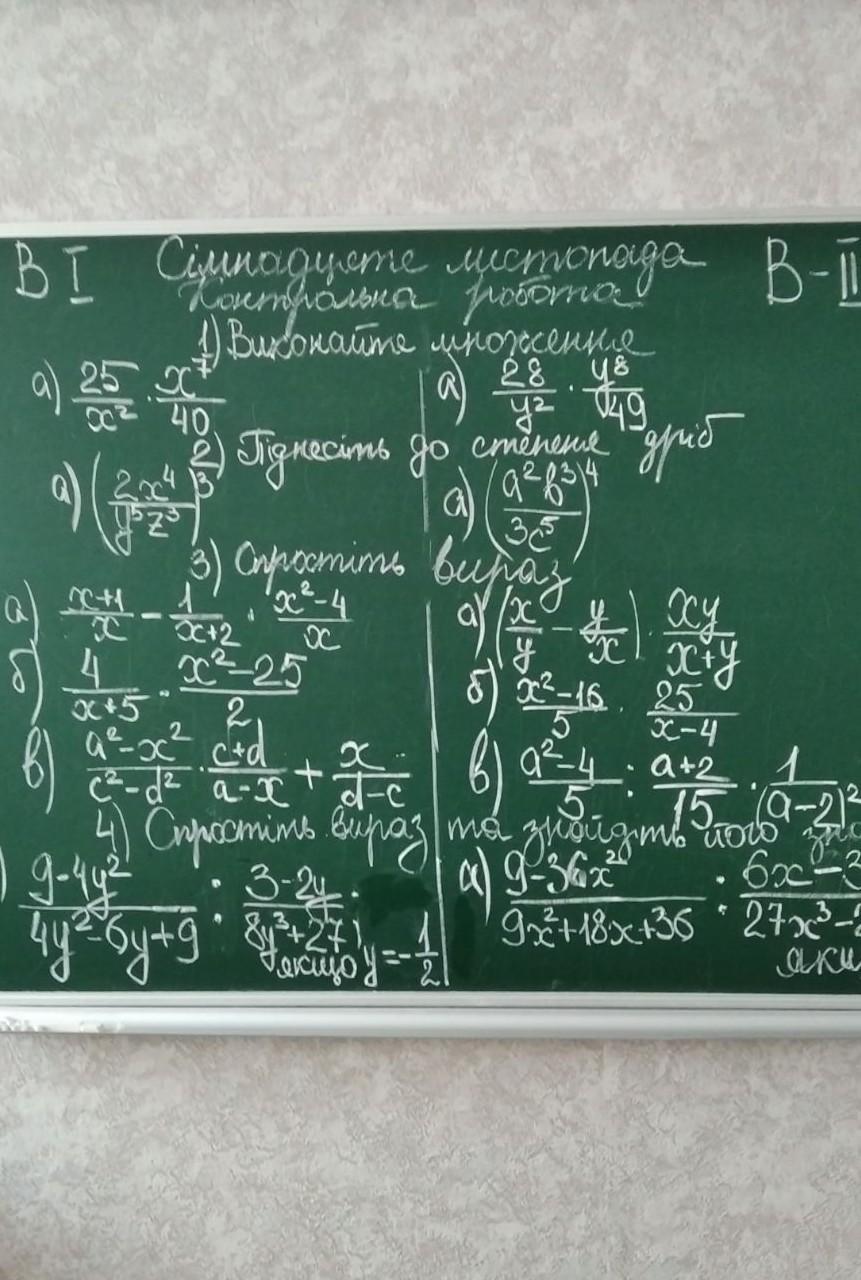 В І Сімнадцяте листопада В-ІІ
Контрольна робота
1) Виконайте множення
а) 25/x² · x⁷/40 а) 28/y² · y⁸/49
2) Піднесіть до степеня дріб
а) (2x⁴/y⁵z³)³ а) (a²b³/3c⁵)⁴
3) Спростіть вираз
а) x+1/x - 1/x+2 · x²-4/x а) (x/y - y/x) · xy/x+y
б) 4/x+5 · x²-25/2 б) x²-16/5 · 25/x-4
в) a²-x²/c²-d² · c+d/a-x + x/d-c в) a²-4/5 : a+2/15 · 1/(a-2)²
4) Спростіть вираз та знайдіть його
) 9-4y²/4y²-6y+9 : 3-2y/8y³+27, а) 9-36x²/9x²+18x+36 : 6x-3/27x³-
якщо y=-1/2